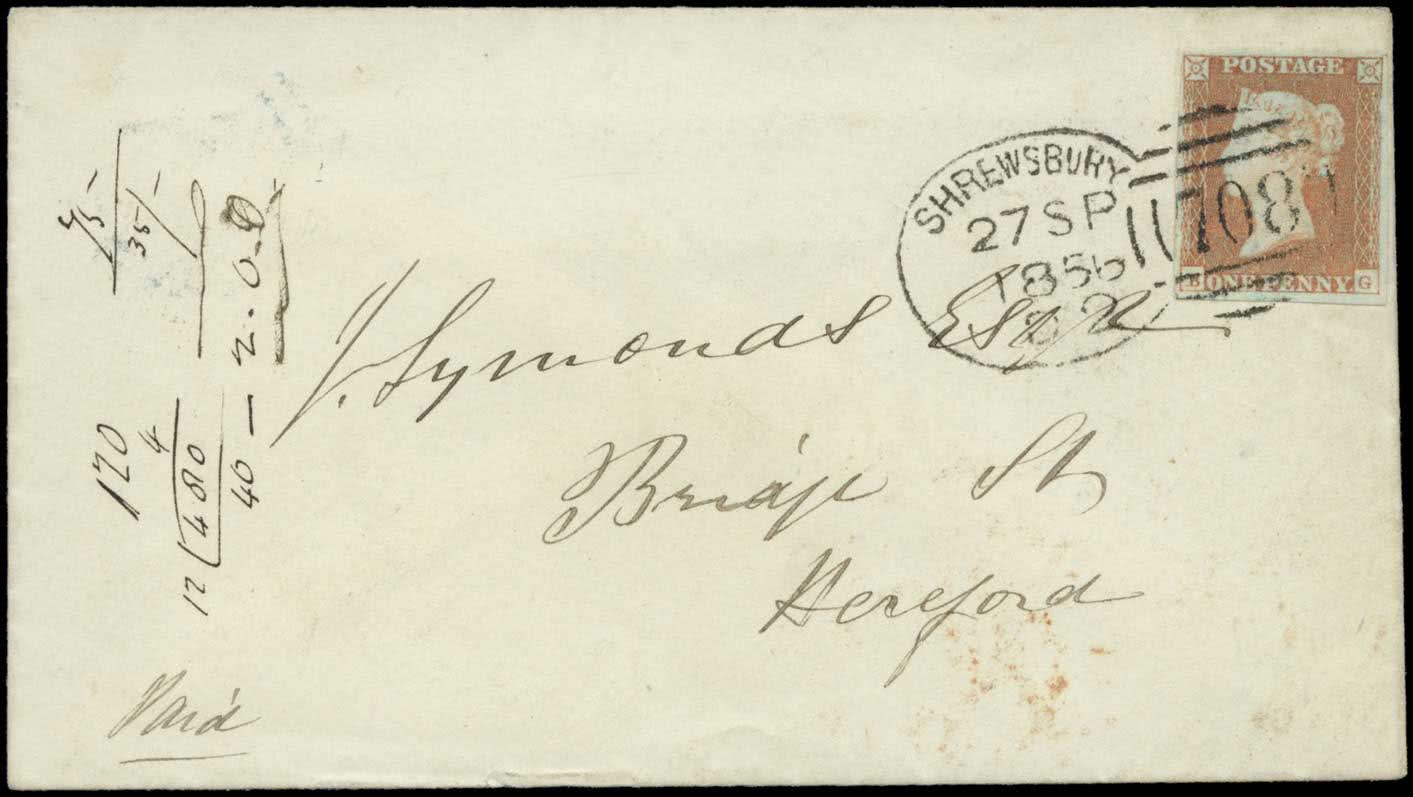 POSTAGE
SHREWSBURY
27 SP
1856
708
B ONE PENNY G
J. Symonds Esqr
Bridge St
Hereford
Paid
120
4
12 480
40 - 2.0.0
35/-